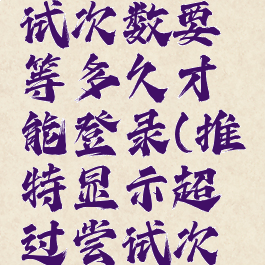 试次数要
等多久才
能登录(推
特显示超
过尝试次